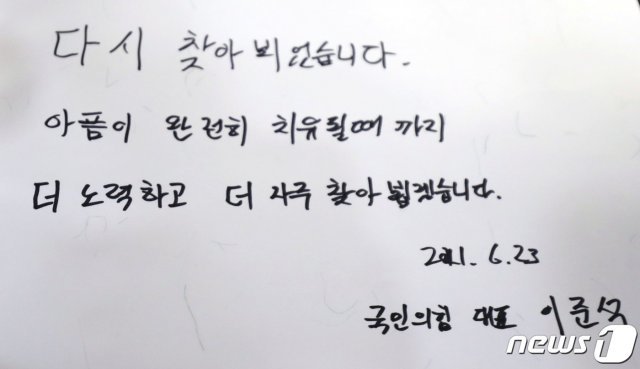 다시 찾아뵈었습니다.
아픔이 완전히 치유될때 까지
더 노력하고 더 자주 찾아 뵙겠습니다.
2021. 6. 23
국민의힘 대표 이준석
news1